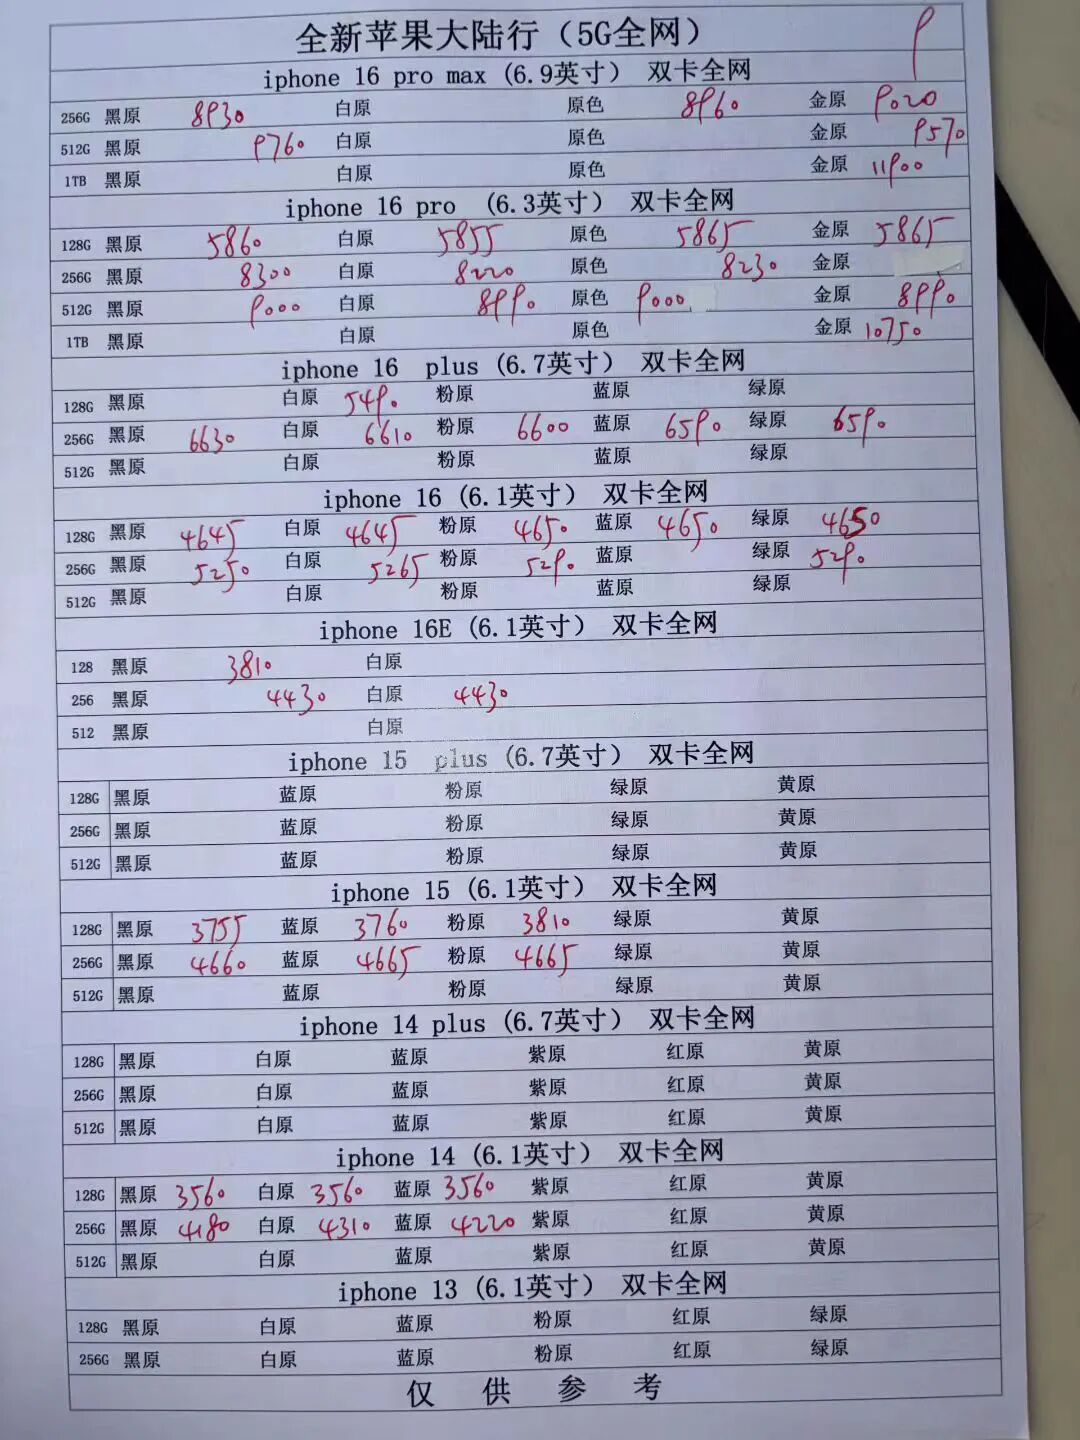 全新苹果大陆行（5G全网） 9
iphone 16 pro max (6.9英寸） 双卡全网
256G 黑原 8930 白原 原色 8960 金原 9020
512G 黑原 9760 白原 原色 金原 9570
1TB 黑原 白原 原色 金原 11900
iphone 16 pro (6.3英寸） 双卡全网
128G 黑原 5860 白原 5855 原色 5865 金原 5865
256G 黑原 8300 白原 8220 原色 8230 金原
512G 黑原 9000 白原 8990 原色 9000 金原 8990
1TB 黑原 白原 原色 金原 10750
iphone 16 plus (6.7英寸） 双卡全网
128G 黑原 白原 5490 粉原 蓝原 绿原
256G 黑原 6630 白原 6610 粉原 6600 蓝原 6590 绿原 6590
512G 黑原 白原 粉原 蓝原 绿原
iphone 16 (6.1英寸） 双卡全网
128G 黑原 4645 白原 4645 粉原 4650 蓝原 4650 绿原 4650
256G 黑原 5250 白原 5265 粉原 5290 蓝原 绿原 5290
512G 黑原 白原 粉原 蓝原 绿原
iphone 16E (6.1英寸） 双卡全网
128 黑原 3810 白原
256 黑原 4430 白原 4430
512 黑原 白原
iphone 15 plus (6.7英寸） 双卡全网
128G 黑原 蓝原 粉原 绿原 黄原
256G 黑原 蓝原 粉原 绿原 黄原
512G 黑原 蓝原 粉原 绿原 黄原
iphone 15 (6.1英寸） 双卡全网
128G 黑原 3755 蓝原 3760 粉原 3810 绿原 黄原
256G 黑原 4660 蓝原 4665 粉原 4665 绿原 黄原
512G 黑原 蓝原 粉原 绿原 黄原
iphone 14 plus (6.7英寸） 双卡全网
128G 黑原 白原 蓝原 紫原 红原 黄原
256G 黑原 白原 蓝原 紫原 红原 黄原
512G 黑原 白原 蓝原 紫原 红原 黄原
iphone 14 (6.1英寸） 双卡全网
128G 黑原 3560 白原 3560 蓝原 3560 紫原 红原 黄原
256G 黑原 4180 白原 4310 蓝原 4220 紫原 红原 黄原
512G 黑原 白原 蓝原 紫原 红原 黄原
iphone 13 (6.1英寸） 双卡全网
128G 黑原 白原 蓝原 粉原 红原 绿原
256G 黑原 白原 蓝原 粉原 红原 绿原
仅 供 参 考